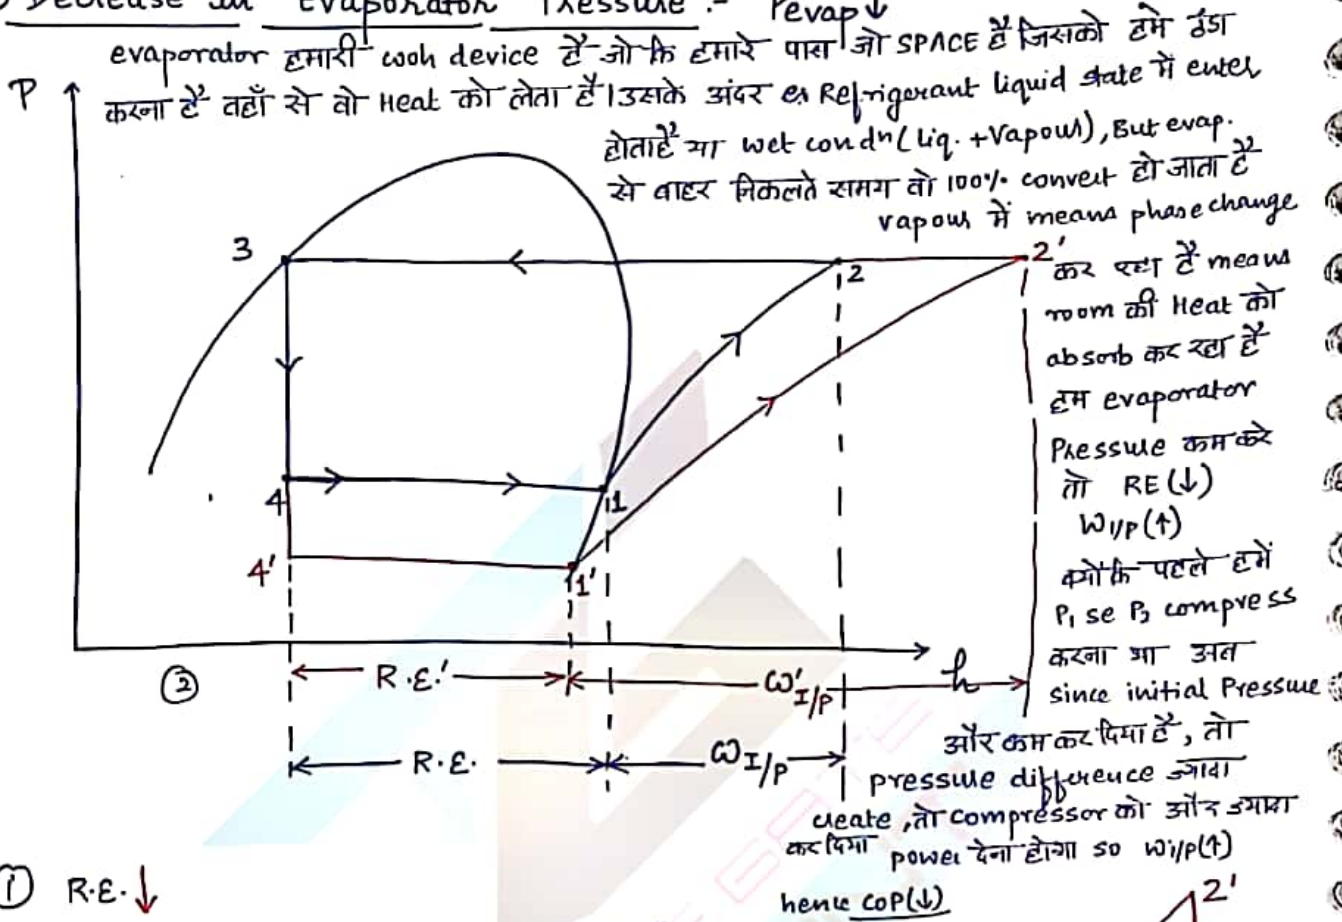 Decrease in Evaporator Pressure :- Pevap↓
evaporator हमारी cooh device है जो कि हमारे पास जो SPACE है जिसको हमे ठंडा
करना है वहाँ से वो Heat को लेता है। उसके अंदर Refrigerant liquid state में enter
होता है या wet condn (Liq. + Vapour), But evap.
से बाहर निकलते समय वो 100% convert हो जाता है
vapour में means phase change
कर रहा है means
room की Heat को
absorb कर रहा है
हम evaporator
Pressure कम करे
तो RE(↓)
WI/P(↑)
क्योंकि पहले हमें
P1 se P2 compress
करना था अब
since initial Pressure
और कम कर दिया है, तो
pressure difference ज्यादा
create, तो compressor को और ज्यादा
कर दिया power देना होगा so Wi/p(↑)
hence COP(↓)
P
3
2
2'
4
1
4'
1'
h
②
R.E.'
ωI/P'
R.E.
ωI/P
① R.E.↓
2'